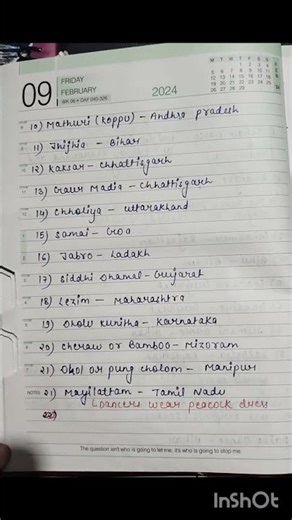 09
FRIDAY
FEBRUARY
WK 06 • DAY 040-326
2024
M T W T F S S
10) Mathuri (koppu) - Andhra pradesh
11) Jhijhia - Bihar
12) Kaksar - Chhattisgarh
13) Gaur Madia - Chhattisgarh
14) Chholiya - uttarakhand
15) Samai - Goa
16) Jabro - Ladakh
17) Siddhi Dhamal - Gujarat
18) Lezim - Maharashtra
19) Dhollu kunitha - Karnataka
20) Cheraw or Bamboo - Mizoram
21) Dhol or pung cholom - Manipur
NOTES 21) Mayilattam - Tamil Nadu
Dancers wear peacock dress
22)
The question isn't who is going to let me, it's who is going to stop me.
InShOt